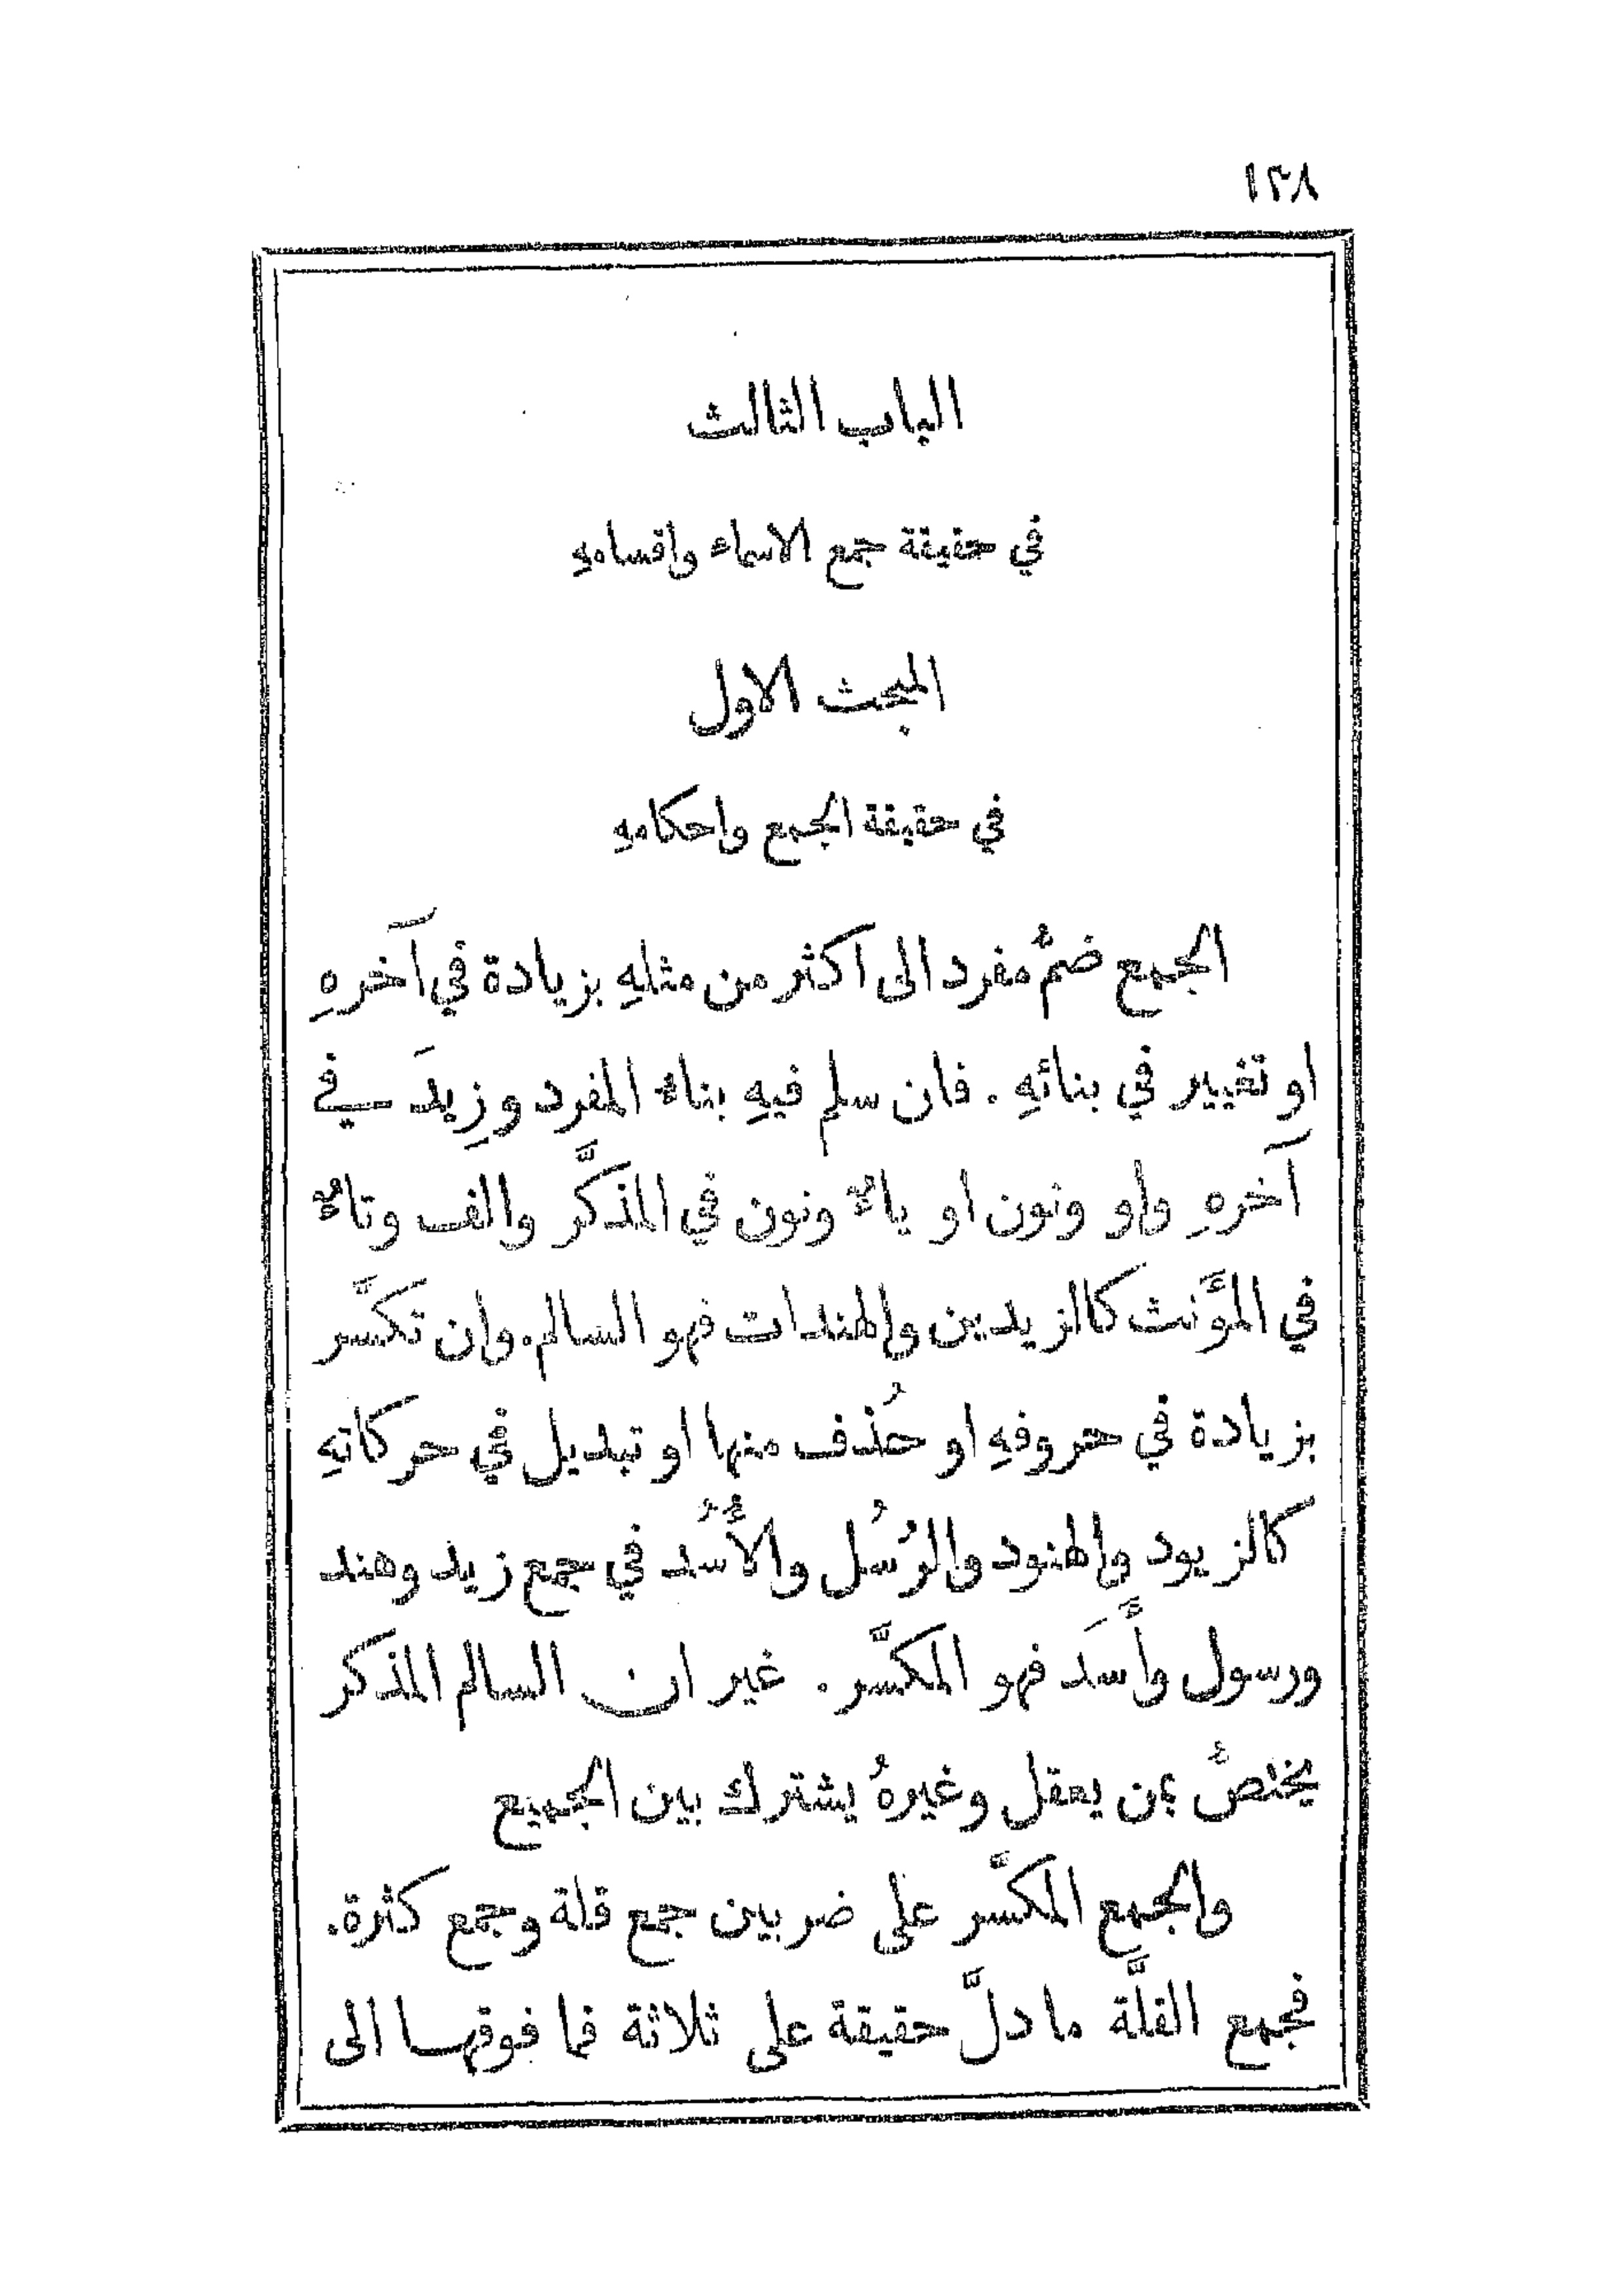 ١٣٨
الباب الثالث
في حقيقة جمع الاسماء واقسامهِ
المبحث الاول
في حقيقة الجمع واحكامهِ
الجمع ضمُّ مفرد الى اكثر من مثلهِ بزيادة في آخرهِ
او تغيير في بنائهِ . فان سلم فيهِ بناءُ المفرد وزِيدَ في
آخرهِ واو ونون او ياءٌ ونون في المذكَّر والف وتاءٌ
في المؤَنث كالزيدين والهندات فهو السالم. وان تكسَّر
بزيادة في حروفهِ او حُذف منها او تبديل في حركاتهِ
كالزيود والهنود والرُسُل والأُسُد في جمع زيد وهند
ورسول وأَسَد فهو المكسَّر . غير ان السالم المذكر
يختصُّ بمن يعقل وغيرهُ يشترك بين الجميع
والجمع المكسَّر على ضربين جمع قلة وجمع كثرة.
فجمع القلَّة ما دلَّ حقيقة على ثلاثة فما فوقها الى